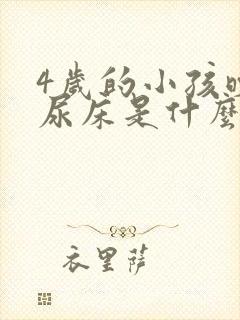 4歲的小孩
尿床是什麼
衣里薩